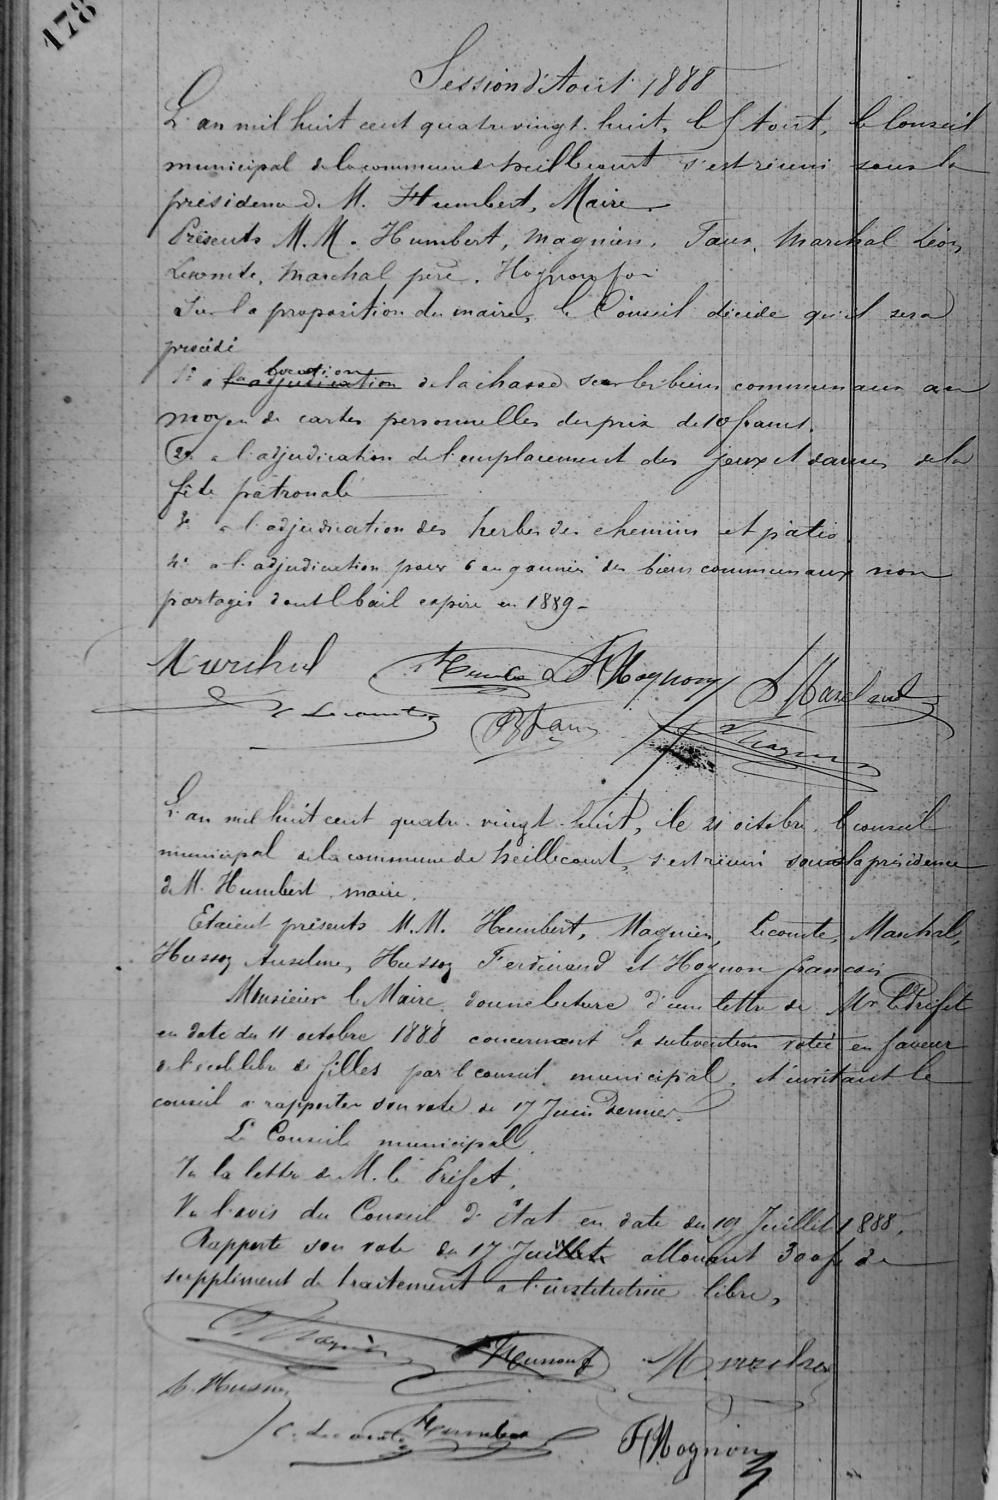 178
Session d'Aout 1888
L'an mil huit cent quatre vingt huit, le 5 Aout, le Conseil
municipal de la commune de heillecourt s'est réuni sous la
présidence de M. Humbert, Maire.
Présents M.M. Humbert, Magnien, Faux, Marchal Léon
Lecomte, Marchal père, Hognon
Sur la proposition du maire, le Conseil décide qu'il sera
procédé
1° a la adjudication location de la chasse sur les biens communaux au
moyen de cartes personnelles du prix de 10 francs.
2° a l'adjudication de l'emplacement des jeux et danses de la
fête patronale
3° a l'adjudication des herbes des chemins et patis
4° a l'adjudication pour 6 ou 9 années des biens communaux non
partagés dont le bail expire en 1889 -
Marchal Humbert F Hognon L Marchal
C Lecomte Faux Magnien
L'an mil huit cent quatre-vingt-huit, le 21 octobre le conseil
municipal de la commune de heillecourt, s'est réuni sous la présidence
de M. Humbert maire.
Etaient présents M.M. Humbert, Magnien, Lecomte, Marchal,
Husson Anselme, Husson Ferdinand et Hognon françois
Monsieur le Maire donne lecture d'une lettre de Mr le Préfet
en date du 11 octobre 1888 concernant la subvention votée en faveur
de l'école libre de filles par le conseil municipal et invitant le
conseil a rapporter son vote de 17 Juin dernier.
Le Conseil municipal,
Vu la lettre de M. le Préfet,
Vu l'avis du Conseil d'état en date du 19 Juillet 1888,
Rapporte son vote du 17 Juin allouant 300f de
supplément de traitement a l'institutrice libre,
Magnien F Husson Marchal
A. Husson
C. Lecomte Humbert F Hognon